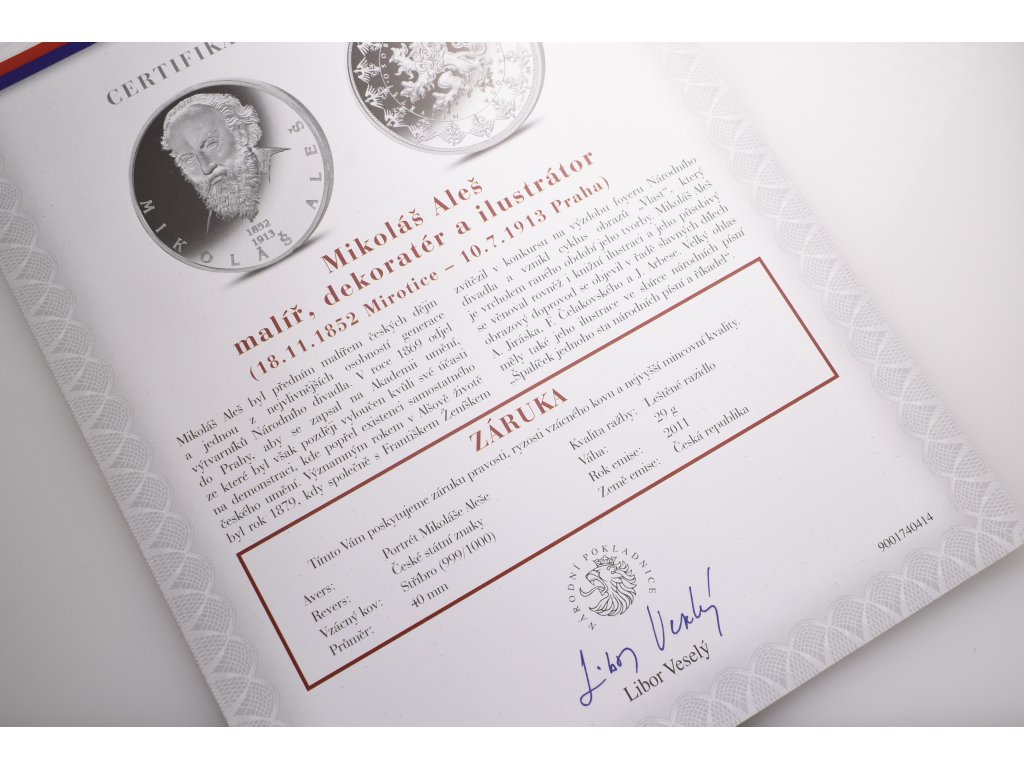 CERTIFIKÁ
MIKOLÁŠ ALEŠ
1852
1913
Mikoláš Aleš
malíř, dekoratér a ilustrátor
(18.11.1852 Mirotice – 10.7.1913 Praha)
Mikoláš Aleš byl předním malířem českých dějin
a jednou z nejvlivnějších osobností generace
výtvarníků Národního divadla. V roce 1869 odjel
do Prahy, aby se zapsal na Akademii umění,
ze které byl však později vyloučen kvůli své účasti
na demonstraci, kde popřel existenci samostatného
českého umění. Významným rokem v Alšově životě
byl rok 1879, kdy společně s Františkem Ženíškem
zvítězil v konkursu na výzdobu foyeru Národního
divadla a vznikl cyklus obrazů „Vlast“, který
je vrcholem raného období jeho tvorby. Mikoláš Aleš
se věnoval rovněž i knižní ilustraci a jeho působivý
obrazový doprovod se objevil v řadě slavných dílech
A. Jiráska, F. Čelakovského a J. Arbese. Velký ohlas
měly také jeho ilustrace ve sbírce národních písní
„Špalíček jednoho sta národních písní a říkadel“.
ZÁRUKA
Tímto Vám poskytujeme záruku pravosti, ryzosti vzácného kovu a nejvyšší mincovní kvality.
Avers: Portrét Mikoláše Aleše
Revers: České státní znaky
Vzácný kov: Stříbro (999/1000)
Průměr: 40 mm
Kvalita ražby: Leštěné razidlo
Váha: 29 g
Rok emise: 2011
Země emise: Česká republika
NÁRODNÍ POKLADNICE
9001740414
Libor Veselý
Libor Veselý